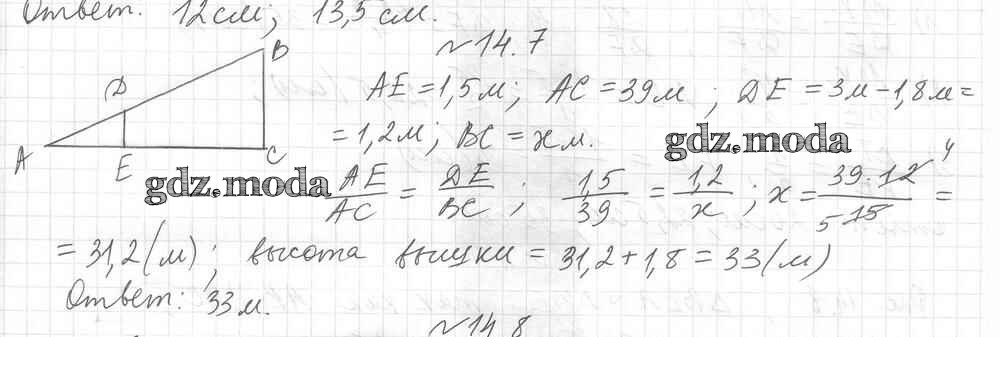 Ответ. 12см; 13,5 см.
N14.7
B
D
A
E
C
AE = 1,5м; AC = 39м; DE = 3м - 1,8м =
= 1,2м; BC = x м.
gdz.moda
gdz.moda
AE/AC = DE/BC; 1,5/39 = 1,2/x; x = 39·12 4/5 15 =
= 31,2(м); высота вышки = 31,2 + 1,8 = 33(м)
Ответ: 33м.
N14.8